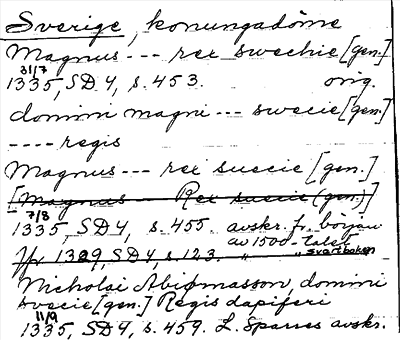 Sverige, konungadöme
Magnus --- rex swechie [gen.]
31/7
1335, SD 4, s. 453. orig.
domini magni --- swecie [gen.]
---- regis
Magnus --- rex suecie [gen.]
[Magnus --- Rex suecie (gen.)]
7/8
1335, SD 4, s. 455. avskr. fr. början
av 1500-talet
Jfr 1329, SD 4, s. 123. " "svartboken
Nicholai Abiømasson, domini
svecie [gen.] Regis dapiferi
11/9
1335, SD 4, s. 459. L. Sparres avskr.